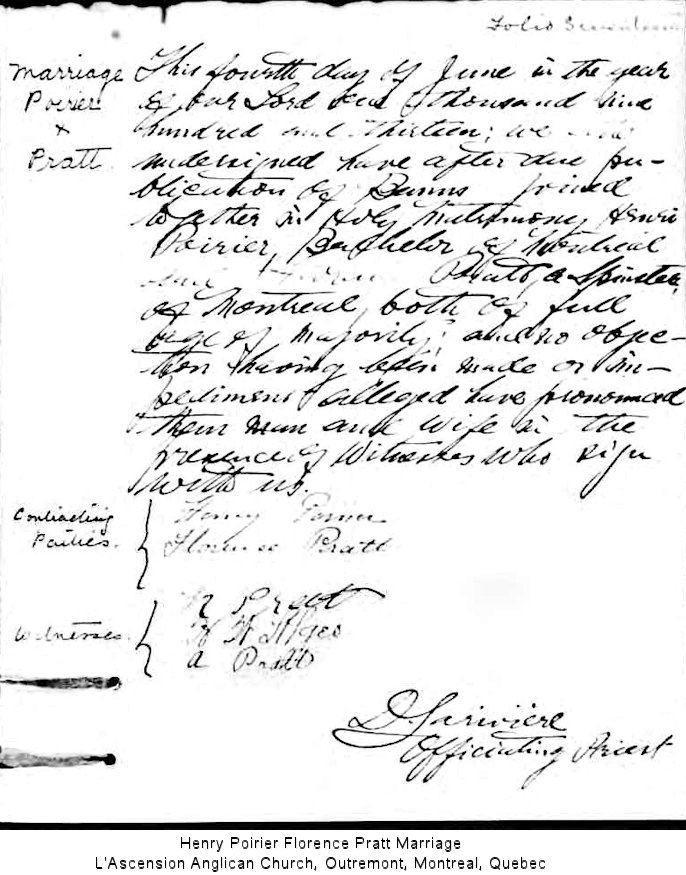 Folio Seventeen
Marriage
Poirier
+
Pratt
This fourth day of June in the year
of our Lord one thousand nine
hundred and thirteen; we
undersigned have after due pu-
blication of Banns joined
together in Holy Matrimony Henri
Poirier, Bachelor of Montreal
and Pratt, a Spinster,
of Montreal, both of full
age of majority; and no objec-
tion having been made or im-
pediment alleged have pronounced
them man and wife in the
presence of Witnesses who sign
with us.
Contracting
Parties.
Henry Poirier
Florence Pratt
Witnesses.
Pratt
A Pratt
D. Lariviere
Officiating Priest
Henry Poirier Florence Pratt Marriage
L'Ascension Anglican Church, Outremont, Montreal, Quebec